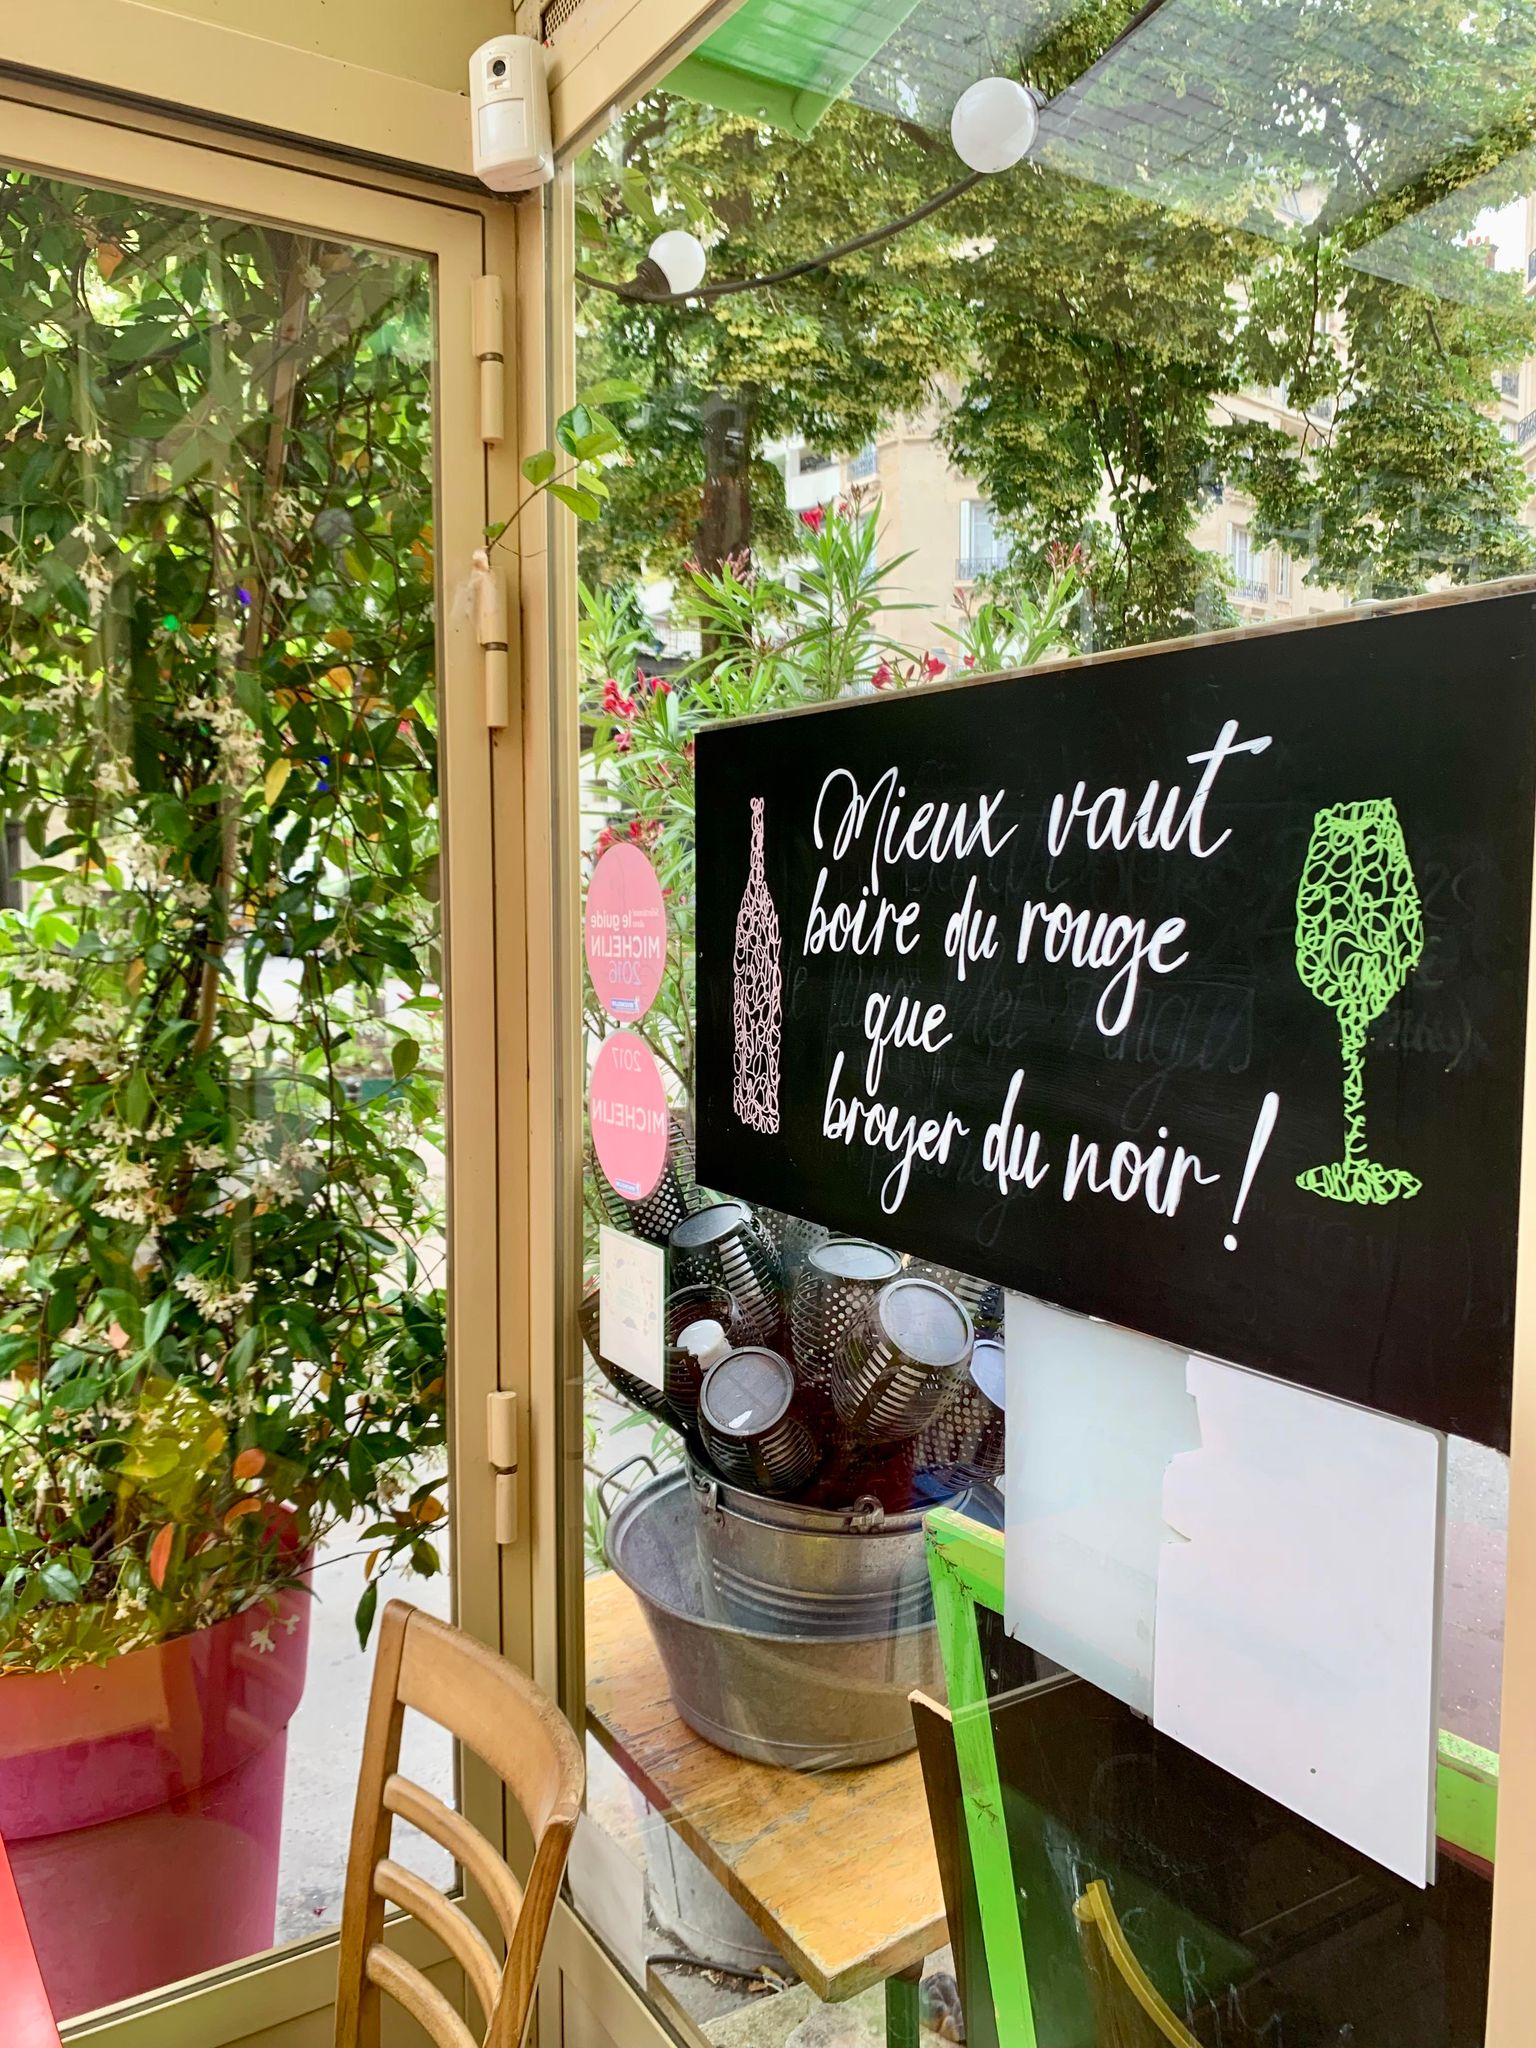 Mieux vaut
boire du rouge
que
broyer du noir !
Sélectionné
dans le guide
MICHELIN
2016
2017
MICHELIN